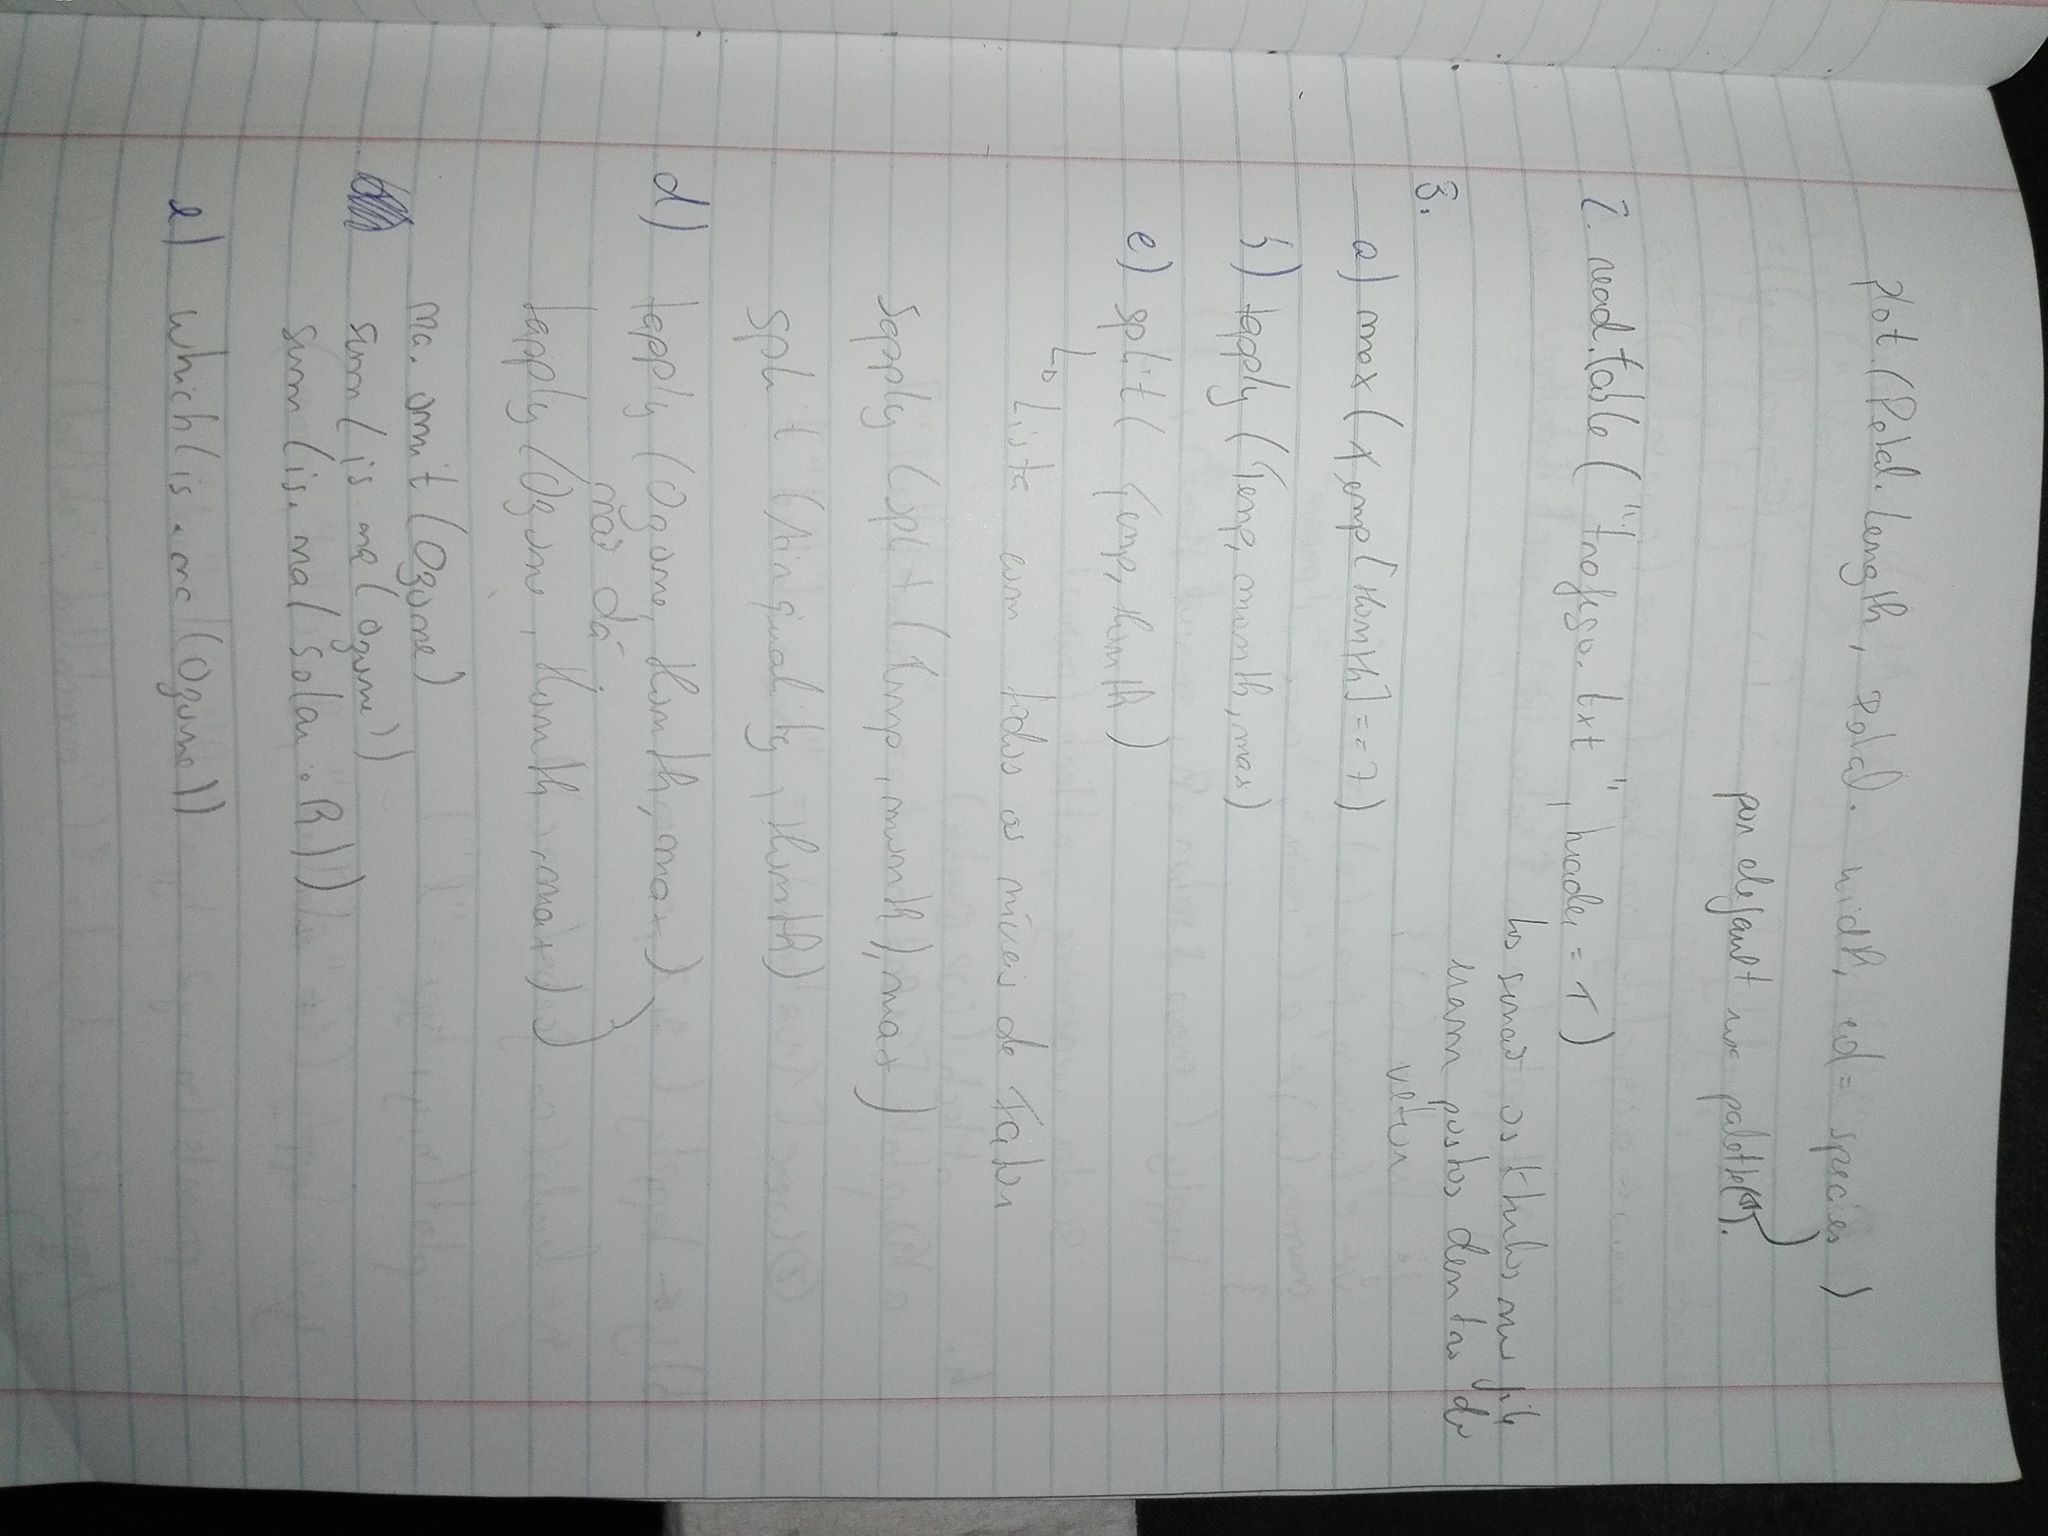 plot (Petal. Length, Petal. width, col = species )
por default usa palette().
2. read.table ( "trafego. txt ", header = T )
senão os titulos no file
eram postos dentro do
vetor
3.
a) max ( Temp [ Month ] == 7 )
b) tapply ( Temp, month, max )
c) split ( Temp, Month )
Lista com todos os níveis de Fator
Sapply ( split ( Temp , month ), max )
split ( Airquality , Month )
d) tapply ( Ozone, Month, max )
não dá
tapply ( Ozone , Month , max )
na. omit ( Ozone )
sum ( is na ( Ozone ) )
sum ( is. na ( Solar . R ) )
e) which ( is . na ( Ozone ) )